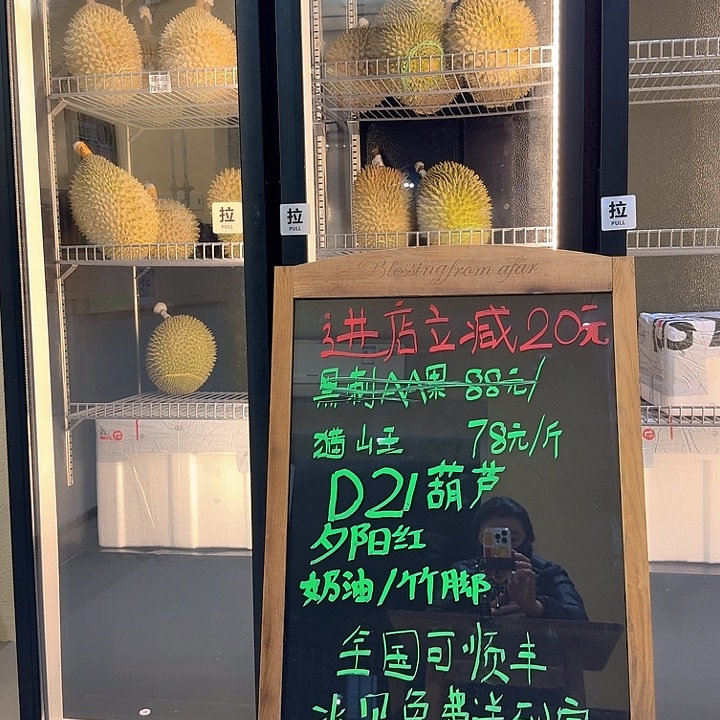 拉
PULL
拉
PULL
拉
PULL
Blessingfrom afar
进店立减20元
黑刺AA果 88元/
猫山王 78元/斤
D21葫芦
夕阳红
奶油/竹脚
全国可顺丰